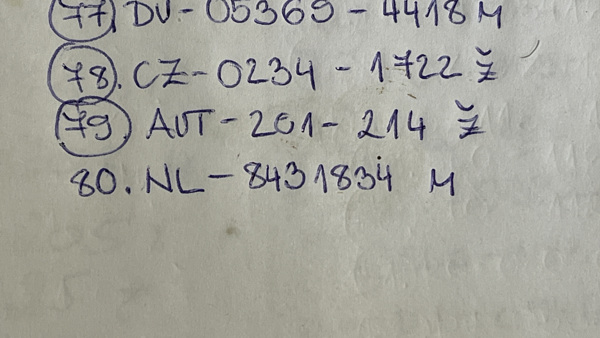 77. DV - 05369 - 4418 M
78. CZ - 0234 - 1722 Ž
79. AUT - 201 - 214 Ž
80. NL - 8431834 M